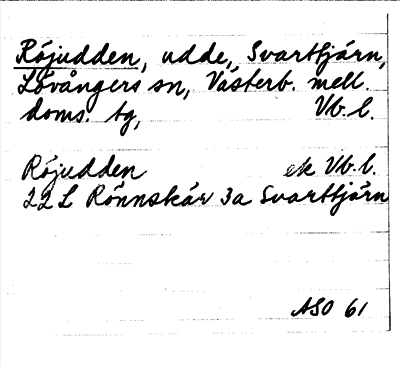 Röjudden, udde, Svarttjärn,
Lövångers sn, Västerb. mell.
doms. tg, Vb. l.
Röjudden ek Vb. l.
22 L Rönnskär 3a Svarttjärn
ASO 61